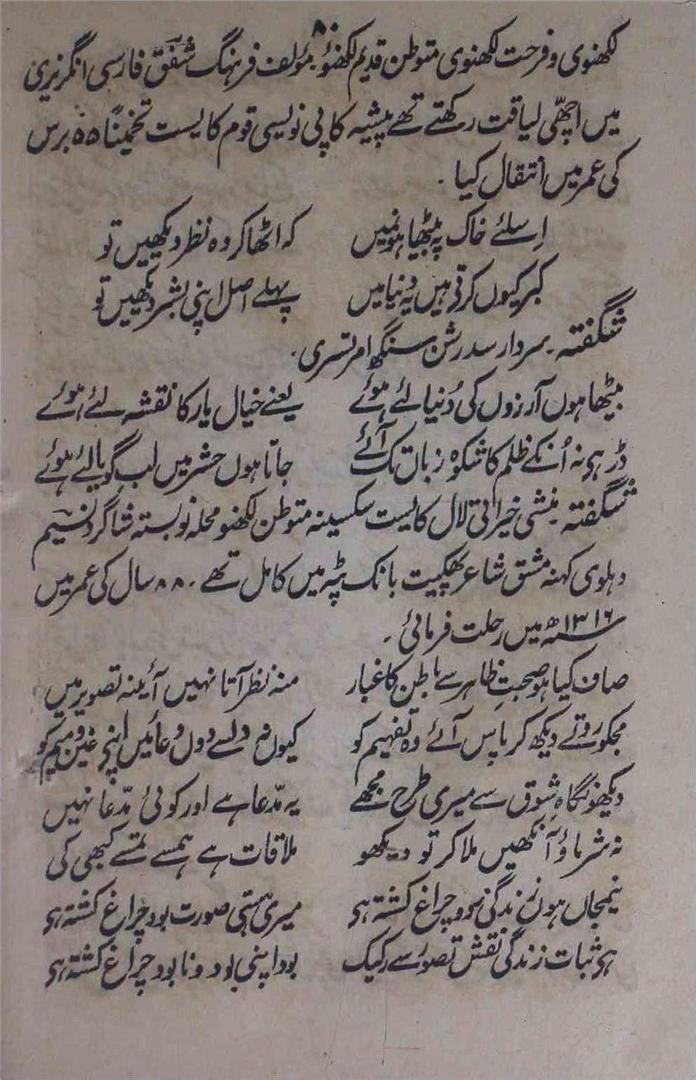 ۸۰
لکھنوی و فرحت لکھنوی متوطن قدیم لکھنؤ مؤلف فرہنگ شفق فارسی انگریزی
میں اچھی لیاقت رکھتے تھے پیشہ کاپی نویسی قوم کایست تخمیناً ۵۵ برس
کی عمر میں انتقال کیا ۔
اِسلئے خاک پہ بیٹھا ہونمیں کہ اٹھا کر وہ نظر دیکھیں تو
کبر کیوں کرتی ہیں یہ دنیا میں پہلے اصل اپنی بشر دیکھیں تو
شگفتہ ۔ سردار سدرشن سنگھ امرتسری ۔
بیٹھا ہوں آرزوں کی دُنیا لئے ہوئے یعنے خیال یار کا نقشہ لئے ہوئے
ڈر ہی نہ اُنکے ظلم کا شکوہ زباں تک آئے جاتا ہوں حشر میں لب گویا لئے ہوئے
شگفتہ منشی خیراتی لال کایست سکسینہ متوطن لکھنو محلہ نوبستہ شاگرد نسیم
دہلوی کہنہ مشق شاعر پھکیت بانک پٹہ میں کامل تھے ۔ ۸۸ سال کی عمر میں
۱۳۱۶ھ میں رحلت فرمائی ۔
صاف کیا ہو صحبتِ ظاہر سے باطن کا غبار منہ نظر آتا نہیں آئینہ تصویر میں
مجکو روتے دیکھ کر پاس آئے وہ تفہیم کو کیوں نہ دلسے دوں دعا میں اپنی غین و میم کو
دیکھو نگاہِ شوق سے میری طرح مجھے یہ مدّعا ہے اور کوئی مدّعا نہیں
نہ شرماؤ آنکھیں ملا کر تو دیکھو ملاقات ہے ہمسے تمسے کبھی کی
نیمجاں ہوں زندگی ہو دود چراغ کشتہ ہی میری ہستی صورت بود چراغ کشتہ ہی
ہی ثبات زندگی نقش تصور سے رکیک بود اپنی بود و نابود چراغ کشتہ ہی